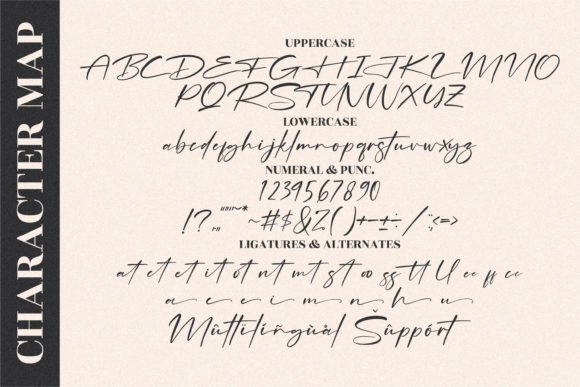 CHARACTER MAP
UPPERCASE
ABCDEFGHIJKLMNO
PQRSTUVWXYZ
LOWERCASE
abcdefghijklmnopqrstuvwxyz
NUMERAL & PUNC.
1239567890
!? ~#$&Z()+-±÷/:;<=>
LIGATURES & ALTERNATES
at et ct it ot nt mt st oo ss tt ll ee ff cc
a c e i m n h u
Mûttilíñgùàl Šûppórt